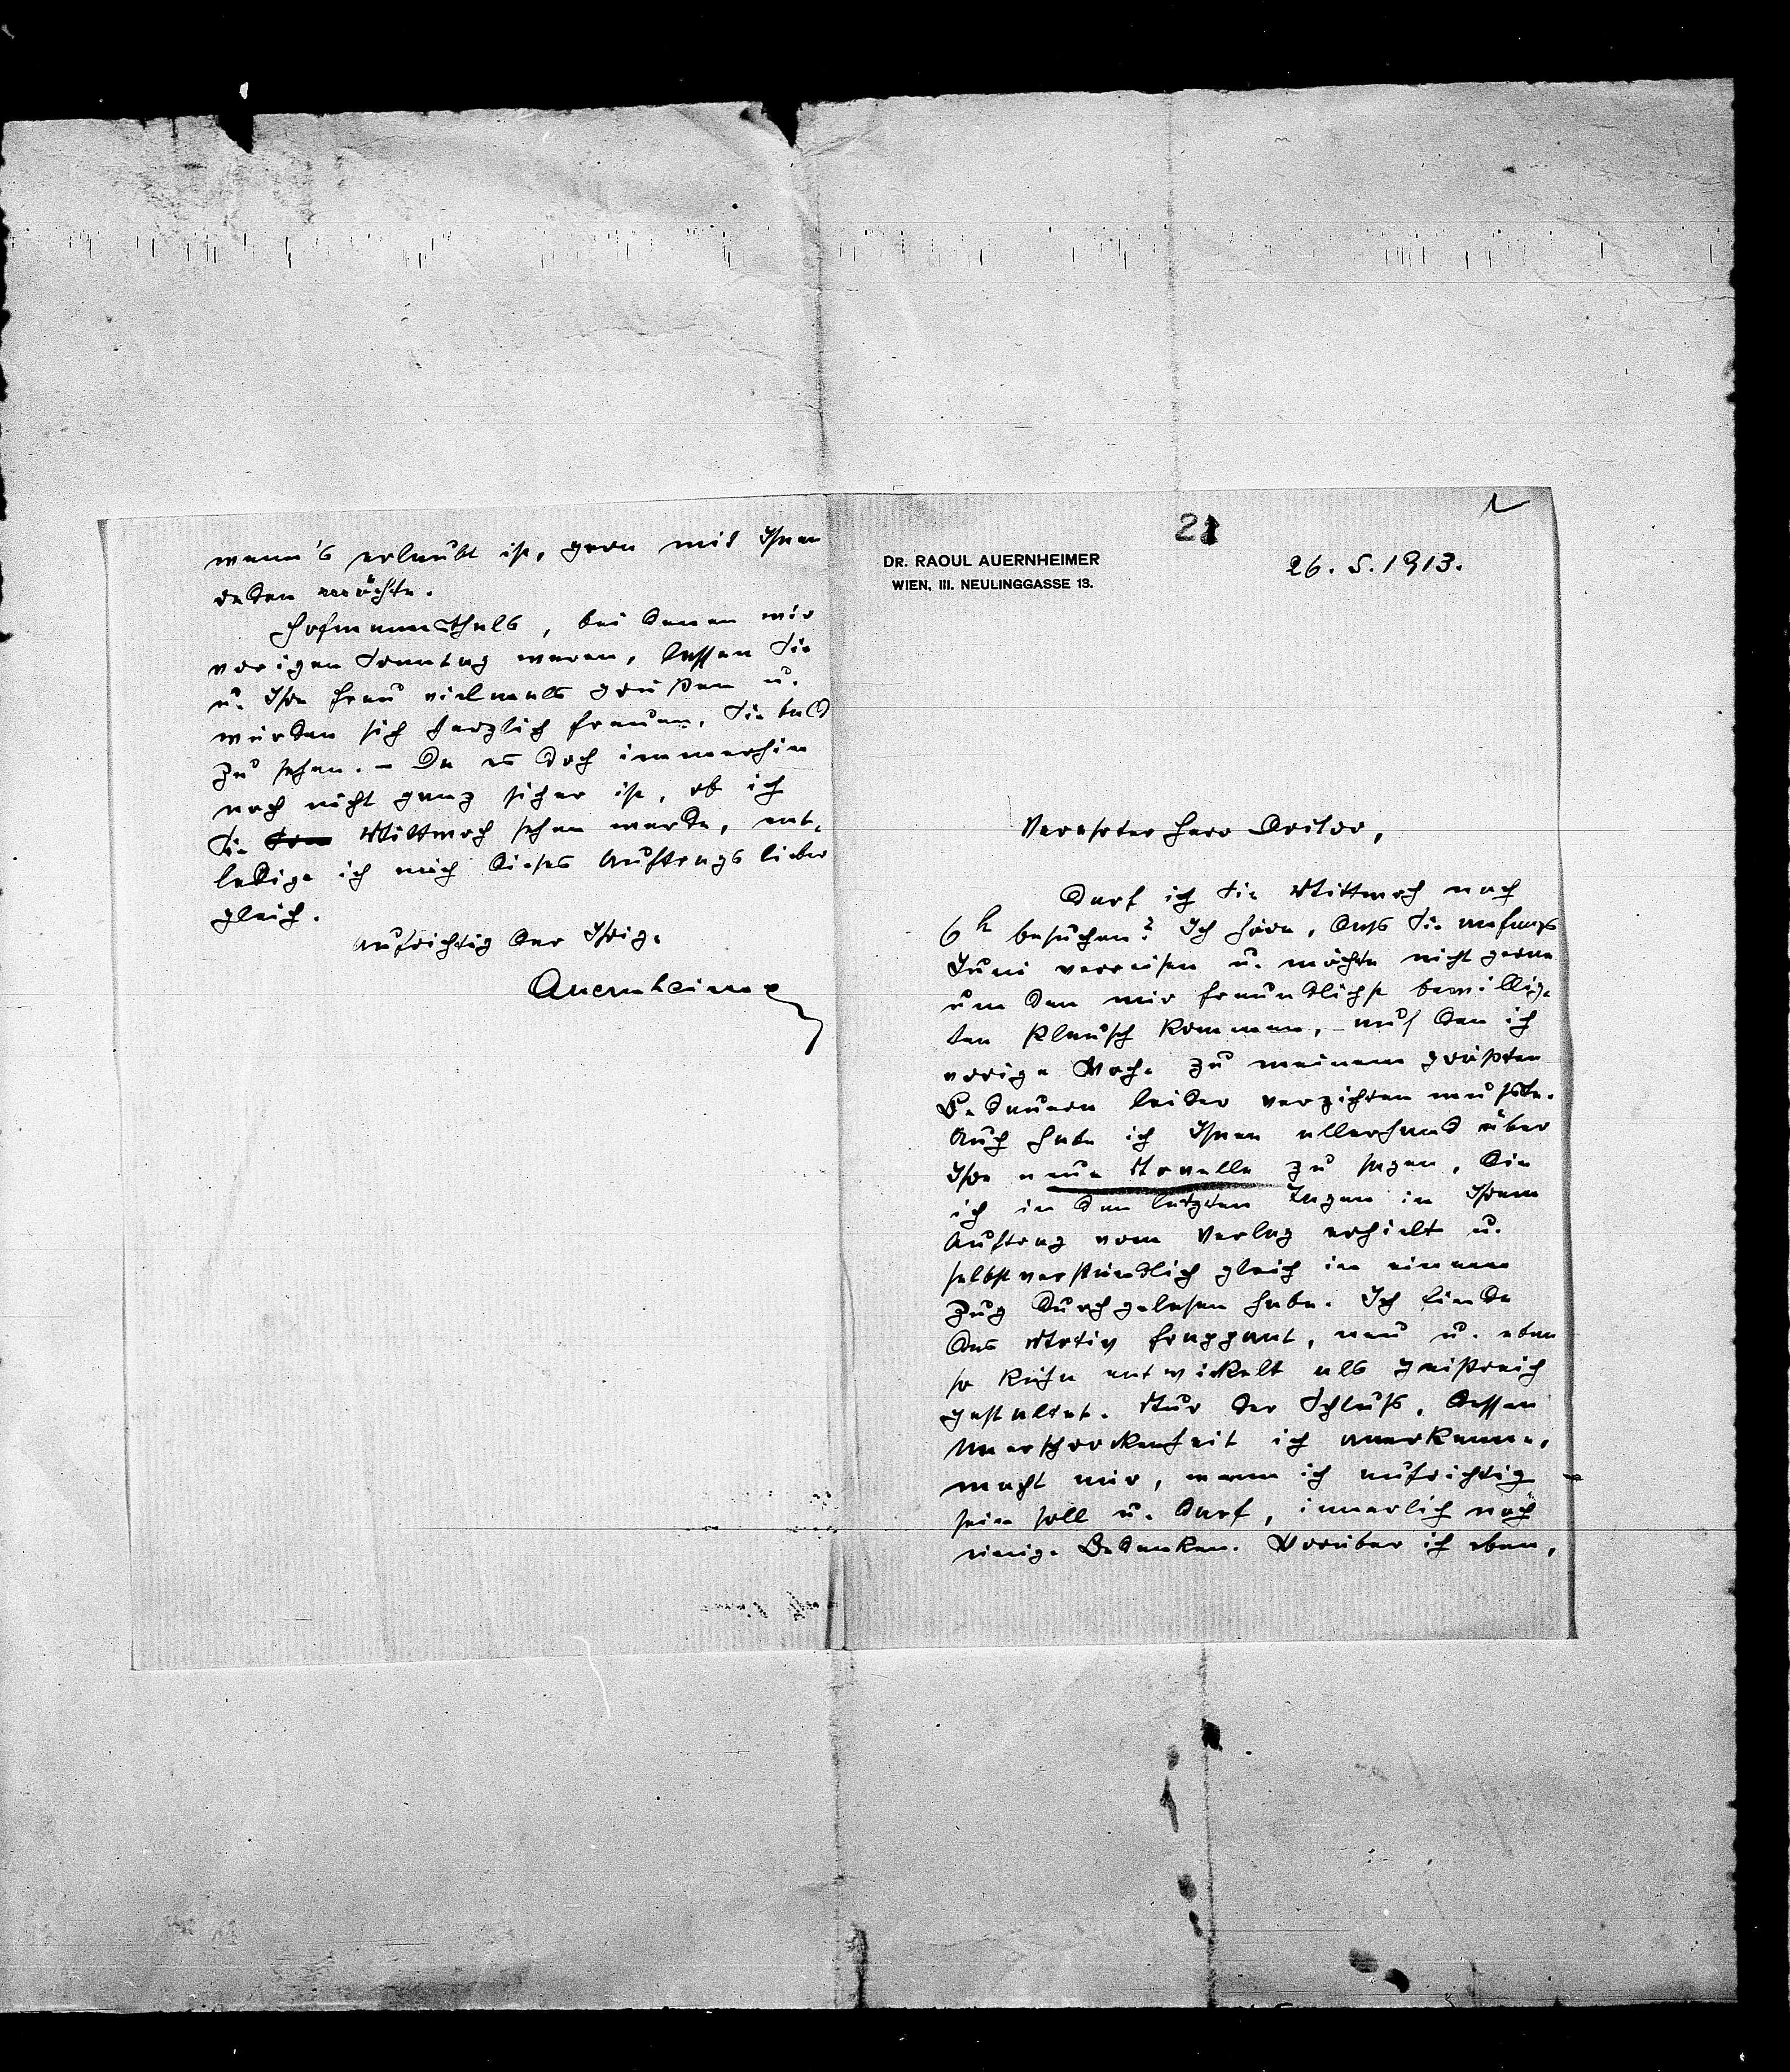 21
DR. RAOUL AUERNHEIMER
WIEN, III. NEULINGGASSE 13.
26. 5. 1913.
Verehrter Herr Doktor,
darf ich Sie Mittwoch nach
6 h besuchen? Ich höre, dass Sie anfangs
Juni verreisen u. möchte nicht gerne
um den mir freundlichst bewillig-
ten Plausch kommen, – auf den ich
vorige Woche zu meinem größten
Bedauern leider verzichten musste.
Auch habe ich Ihnen allerhand über
Ihre neue Novelle zu sagen, die
ich in den letzten Tagen in Ihrem
Auftrag vom Verlag erhielt u.
selbstverständlich gleich in einem
Zug durchgelesen habe. Ich finde
das Motiv frappant, neu u. eben
so kühn entwickelt als geistreich
gestaltet. Nur der Schluss, dessen
Unerschrockenheit ich anerkenne,
macht mir, wenn ich aufrichtig
sein soll u. darf, innerlich noch
einige Bedenken. Worüber ich eben,
wenn's erlaubt ist, gern mit Ihnen
reden möchte.
Hofmannsthals, bei denen wir
vorigen Sonntag waren, lassen Sie
u. Ihre Frau vielmals grüßen u.
würden sich herzlich freuen, Sie bald
zu sehen. – Da es doch immerhin
noch nicht ganz sicher ist, ob ich
Sie Mittwoch sehen werde, ent-
ledige ich mich dieses Auftrags lieber
gleich.
Aufrichtig der Ihrige
Auernheimer